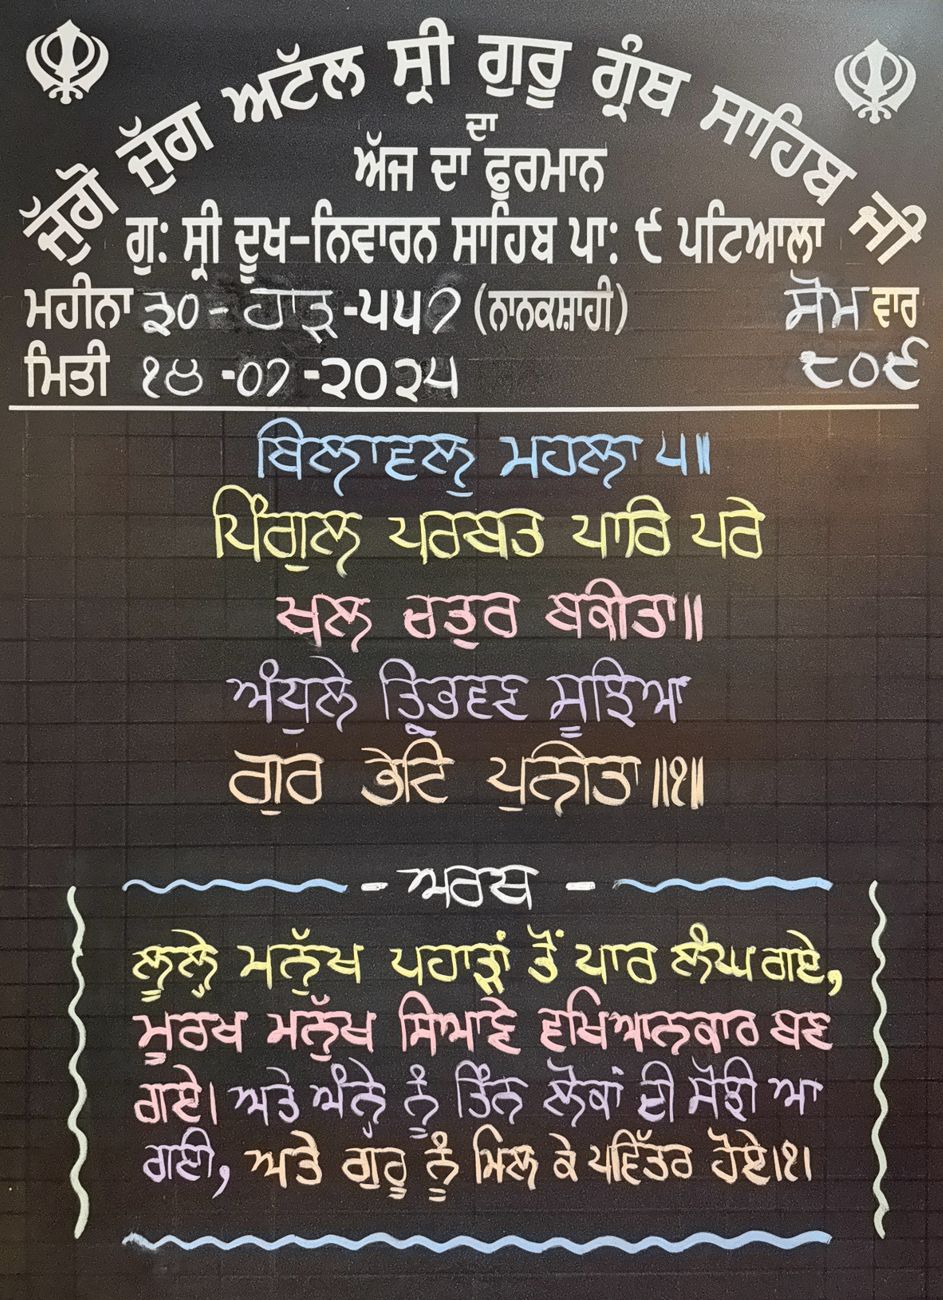 ਜੁੱਗੋ ਜੁੱਗ ਅਟੱਲ ਸ੍ਰੀ ਗੁਰੂ ਗ੍ਰੰਥ ਸਾਹਿਬ ਜੀ
ਦਾ
ਅੱਜ ਦਾ ਫੁਰਮਾਨ
ਗੁ: ਸ੍ਰੀ ਦੂਖ-ਨਿਵਾਰਨ ਸਾਹਿਬ ਪਾ: ੯ ਪਟਿਆਲਾ
ਮਹੀਨਾ ੩੦ - ਹਾੜ੍ਹ -੫੫੭ (ਨਾਨਕਸ਼ਾਹੀ) ਸੋਮ ਵਾਰ
ਮਿਤੀ ੧੪ -07 -੨੦੨੫ ੮੦੯
ਬਿਲਾਵਲੁ ਮਹਲਾ ੫॥
ਪਿੰਗੁਲ ਪਰਬਤ ਪਾਰਿ ਪਰੇ
ਖਲ ਚਤੁਰ ਬਕੀਤਾ॥
ਅੰਧੁਲੇ ਤ੍ਰਿਭਵਣ ਸੂਝਿਆ
ਗੁਰ ਭੇਟਿ ਪੁਨੀਤਾ ॥੧॥
- ਅਰਥ -
ਲੂਲ੍ਹੇ ਮਨੁੱਖ ਪਹਾੜਾਂ ਤੋਂ ਪਾਰ ਲੰਘ ਗਏ,
ਮੂਰਖ ਮਨੁੱਖ ਸਿਆਣੇ ਵਖਿਆਨਕਾਰ ਬਣ
ਗਏ। ਅਤੇ ਅੰਨ੍ਹੇ ਨੂੰ ਤਿੰਨ ਲੋਕਾਂ ਦੀ ਸੋਝੀ ਆ
ਗਈ, ਅਤੇ ਗੁਰੂ ਨੂੰ ਮਿਲ ਕੇ ਪਵਿੱਤਰ ਹੋਏ।੧।